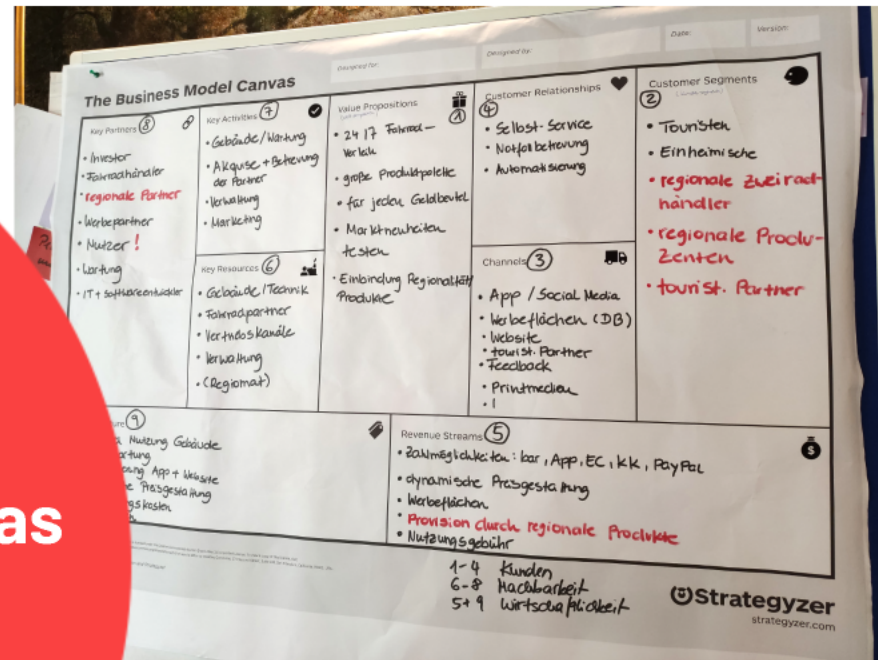 The Business Model Canvas
Designed for:
Designed by:
Date:
Version:
Key Partners 8
• Investor
• Fahrradhändler
• regionale Partner
• Werbepartner
• Nutzer !
• Wartung
• IT + Softwareentwickler
Key Activities 7
• Gebäude / Wartung
• Akquise + Betreuung
der Partner
• Verwaltung
• Marketing
Key Resources 6
• Gebäude / Technik
• Fahrradpartner
• Vertriebskanäle
• Verwaltung
• (Regiomat)
Value Propositions
1
• 24 17 Fahrrad-
Verleih
• große Produktpalette
• für jeden Geldbeutel
• Marktneuheiten
testen
• Einbindung Regionalität/
Produkte
Customer Relationships
4
• Selbst-Service
• Notfallbetreuung
• Automatisierung
Channels 3
• App / Social Media
• Werbeflächen (DB)
• Website
• tourist. Partner
• Feedback
• Printmedien
Customer Segments
2
• Touristen
• Einheimische
• regionale Zweirad-
händler
• regionale Produ-
zenten
• tourist. Partner
9
Nutzung Gebäude
App + Website
Preisgestaltung
Revenue Streams 5
• Zahlmöglichkeiten: bar, App, EC, KK, PayPal
• dynamische Preisgestaltung
• Werbeflächen
• Provision durch regionale Produkte
• Nutzungsgebühr
1-4 Kunden
6-8 Machbarkeit
5+9 Wirtschaftlichkeit
Strategyzer
strategyzer.com
as